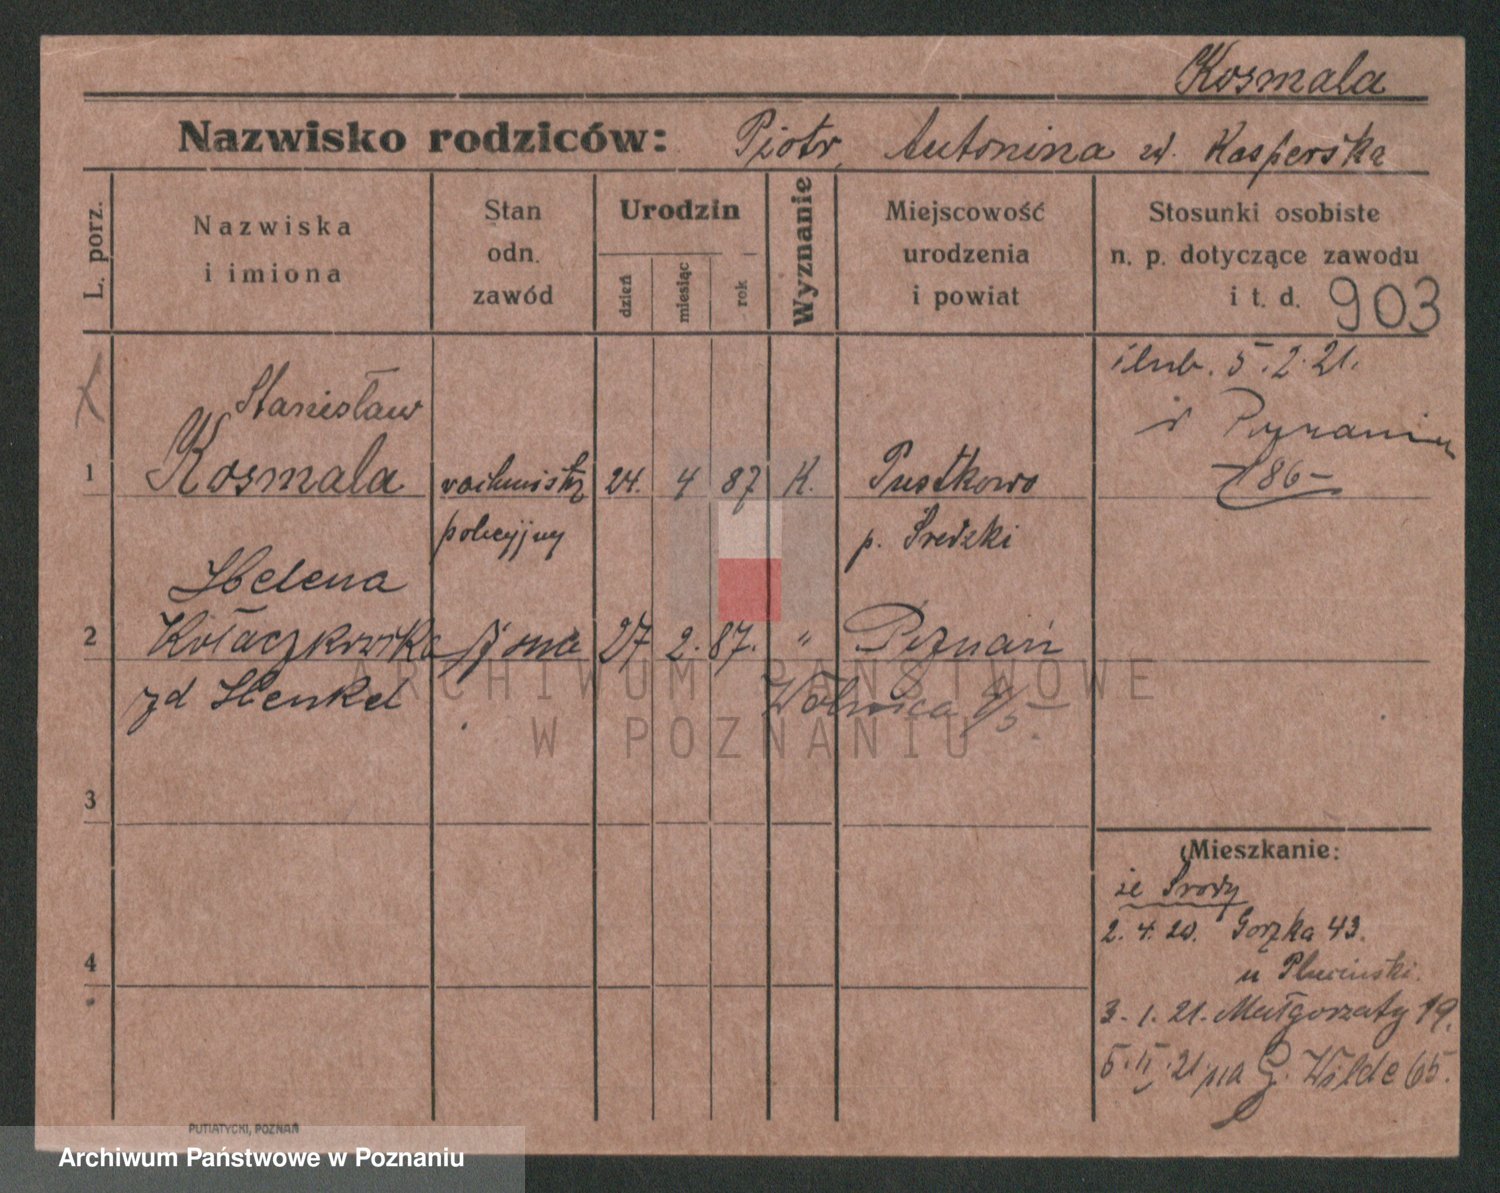 Kosmala
Nazwisko rodziców: Piotr, Antonina zd. Kasperska
L. porz.
Nazwiska
i imiona
Stan
odn.
zawód
Urodzin
dzień
miesiąc
rok
Wyznanie
Miejscowość
urodzenia
i powiat
Stosunki osobiste
n. p. dotyczące zawodu
i t. d. 903
ślub. 5.2.21.
w Poznaniu
186
Stanisław
1 Kosmala wachmistrz 24. 4 87 K. Pustkowo
policyjny p. Średzki
Helena
2 Kołaczkowska żona 27 2. 87. " Poznań
zd Henkel Wolnica 4/5.
3
4
Mieszkanie:
ze Środy
2. 4. 20. Gorzka 43.
u Pluciński.
3. 1. 21. Małgorzaty 19.
5. II. 21 na G. Wilde 65.
PUTIATYCKI, POZNAŃ
ARCHIWUM PAŃSTWOWE
W POZNANIU
Archiwum Państwowe w Poznaniu